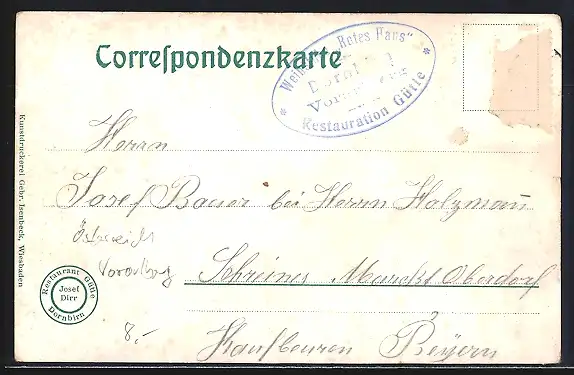 Correspondenzkarte
Weinstube „Rotes Haus"
Dornbirn
Vorarlberg
Restauration Gütle
Herrn
Josef Bauer bei Herrn Holzmann
Österreich
Vorarlberg
Schreiner Marckt Oberdorf
Kaufbeuren Beyern
8.-
Restaurant Gütle
Josef
Dirr
Dornbirn
Kunstdruckerei Gebr. Isenbeck, Wiesbaden